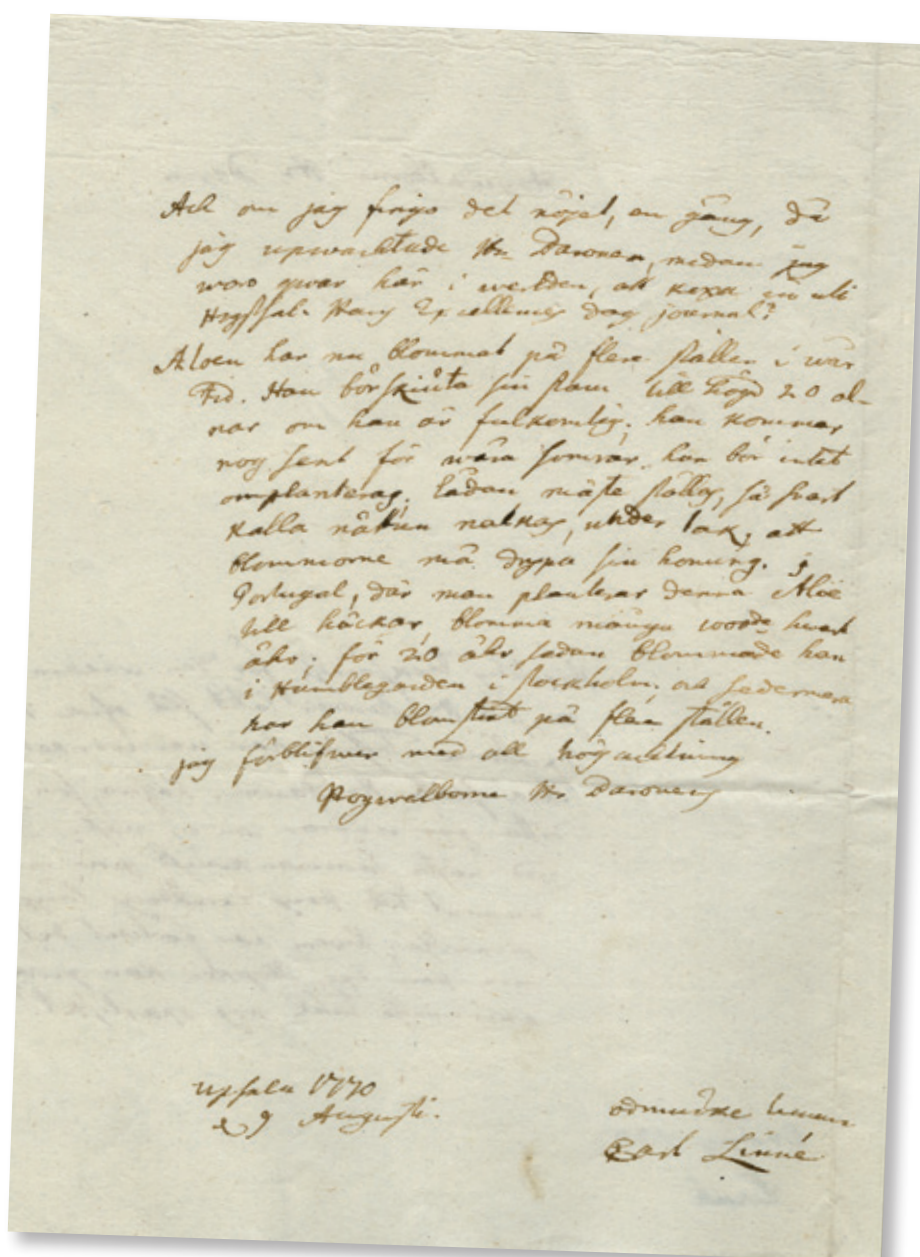 Ack om jag finge det nöjet, en gång, då
jag upwachtade Hr Baronen, medan jag
woro qwar här i werlden, att koxa in uti
Högsal. Hans Excellences dag journal?
Aloen har nu blommat på flere ställen i wår
Tid. Han bör skiuta sin stam till högd 20 al-
nar om han är fulkomlig; han kommer
nog sent för wåra somrar. han bör intet
omplanteras; Lådan måste ställas, så snart
kalla nätter nalkas, under tak, att
blommorne må dryppa sin honung. j
Portugal, där man planterar denna Aloë
till häckar, blomma många 1000de hwart
åhr; för 20 åhr sedan blommade han
i Humblegården i Stockholm. och sedermera
har han blomstrat på flere ställen.
jag förblifwer med all högachtning
Högwelborne Hr Baronens
Upsala 1770
d 9 Augusti.
ödmiuke tienare
Carl Linné